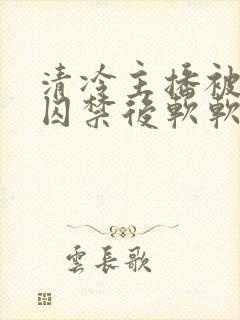 清冷主播被
囚禁後軟軟
雲長歌